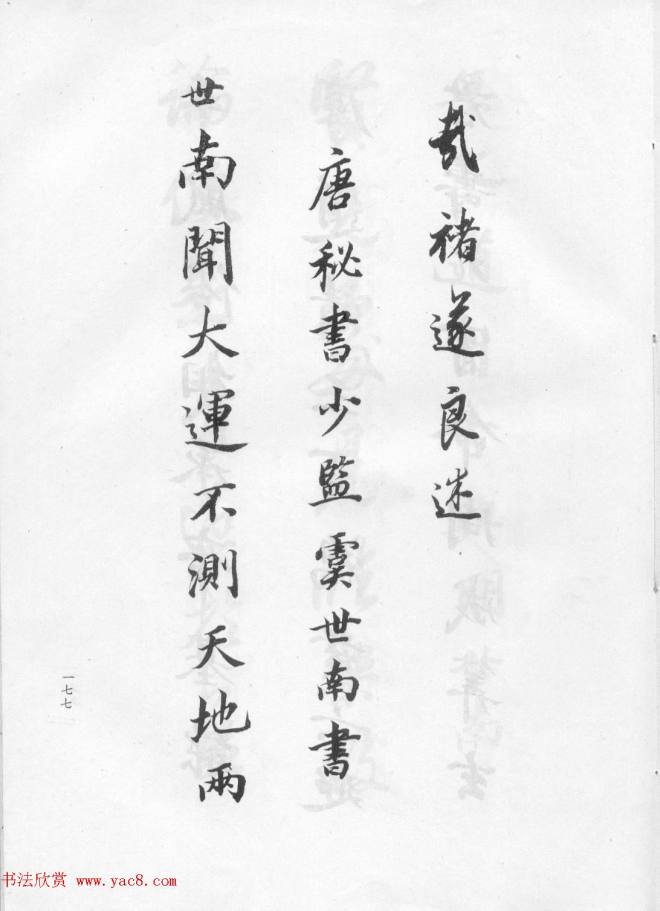 哉褚遂良述
唐秘書少監虞世南書
世南聞大運不測天地兩
一七七
书法欣赏 www.yac8.com